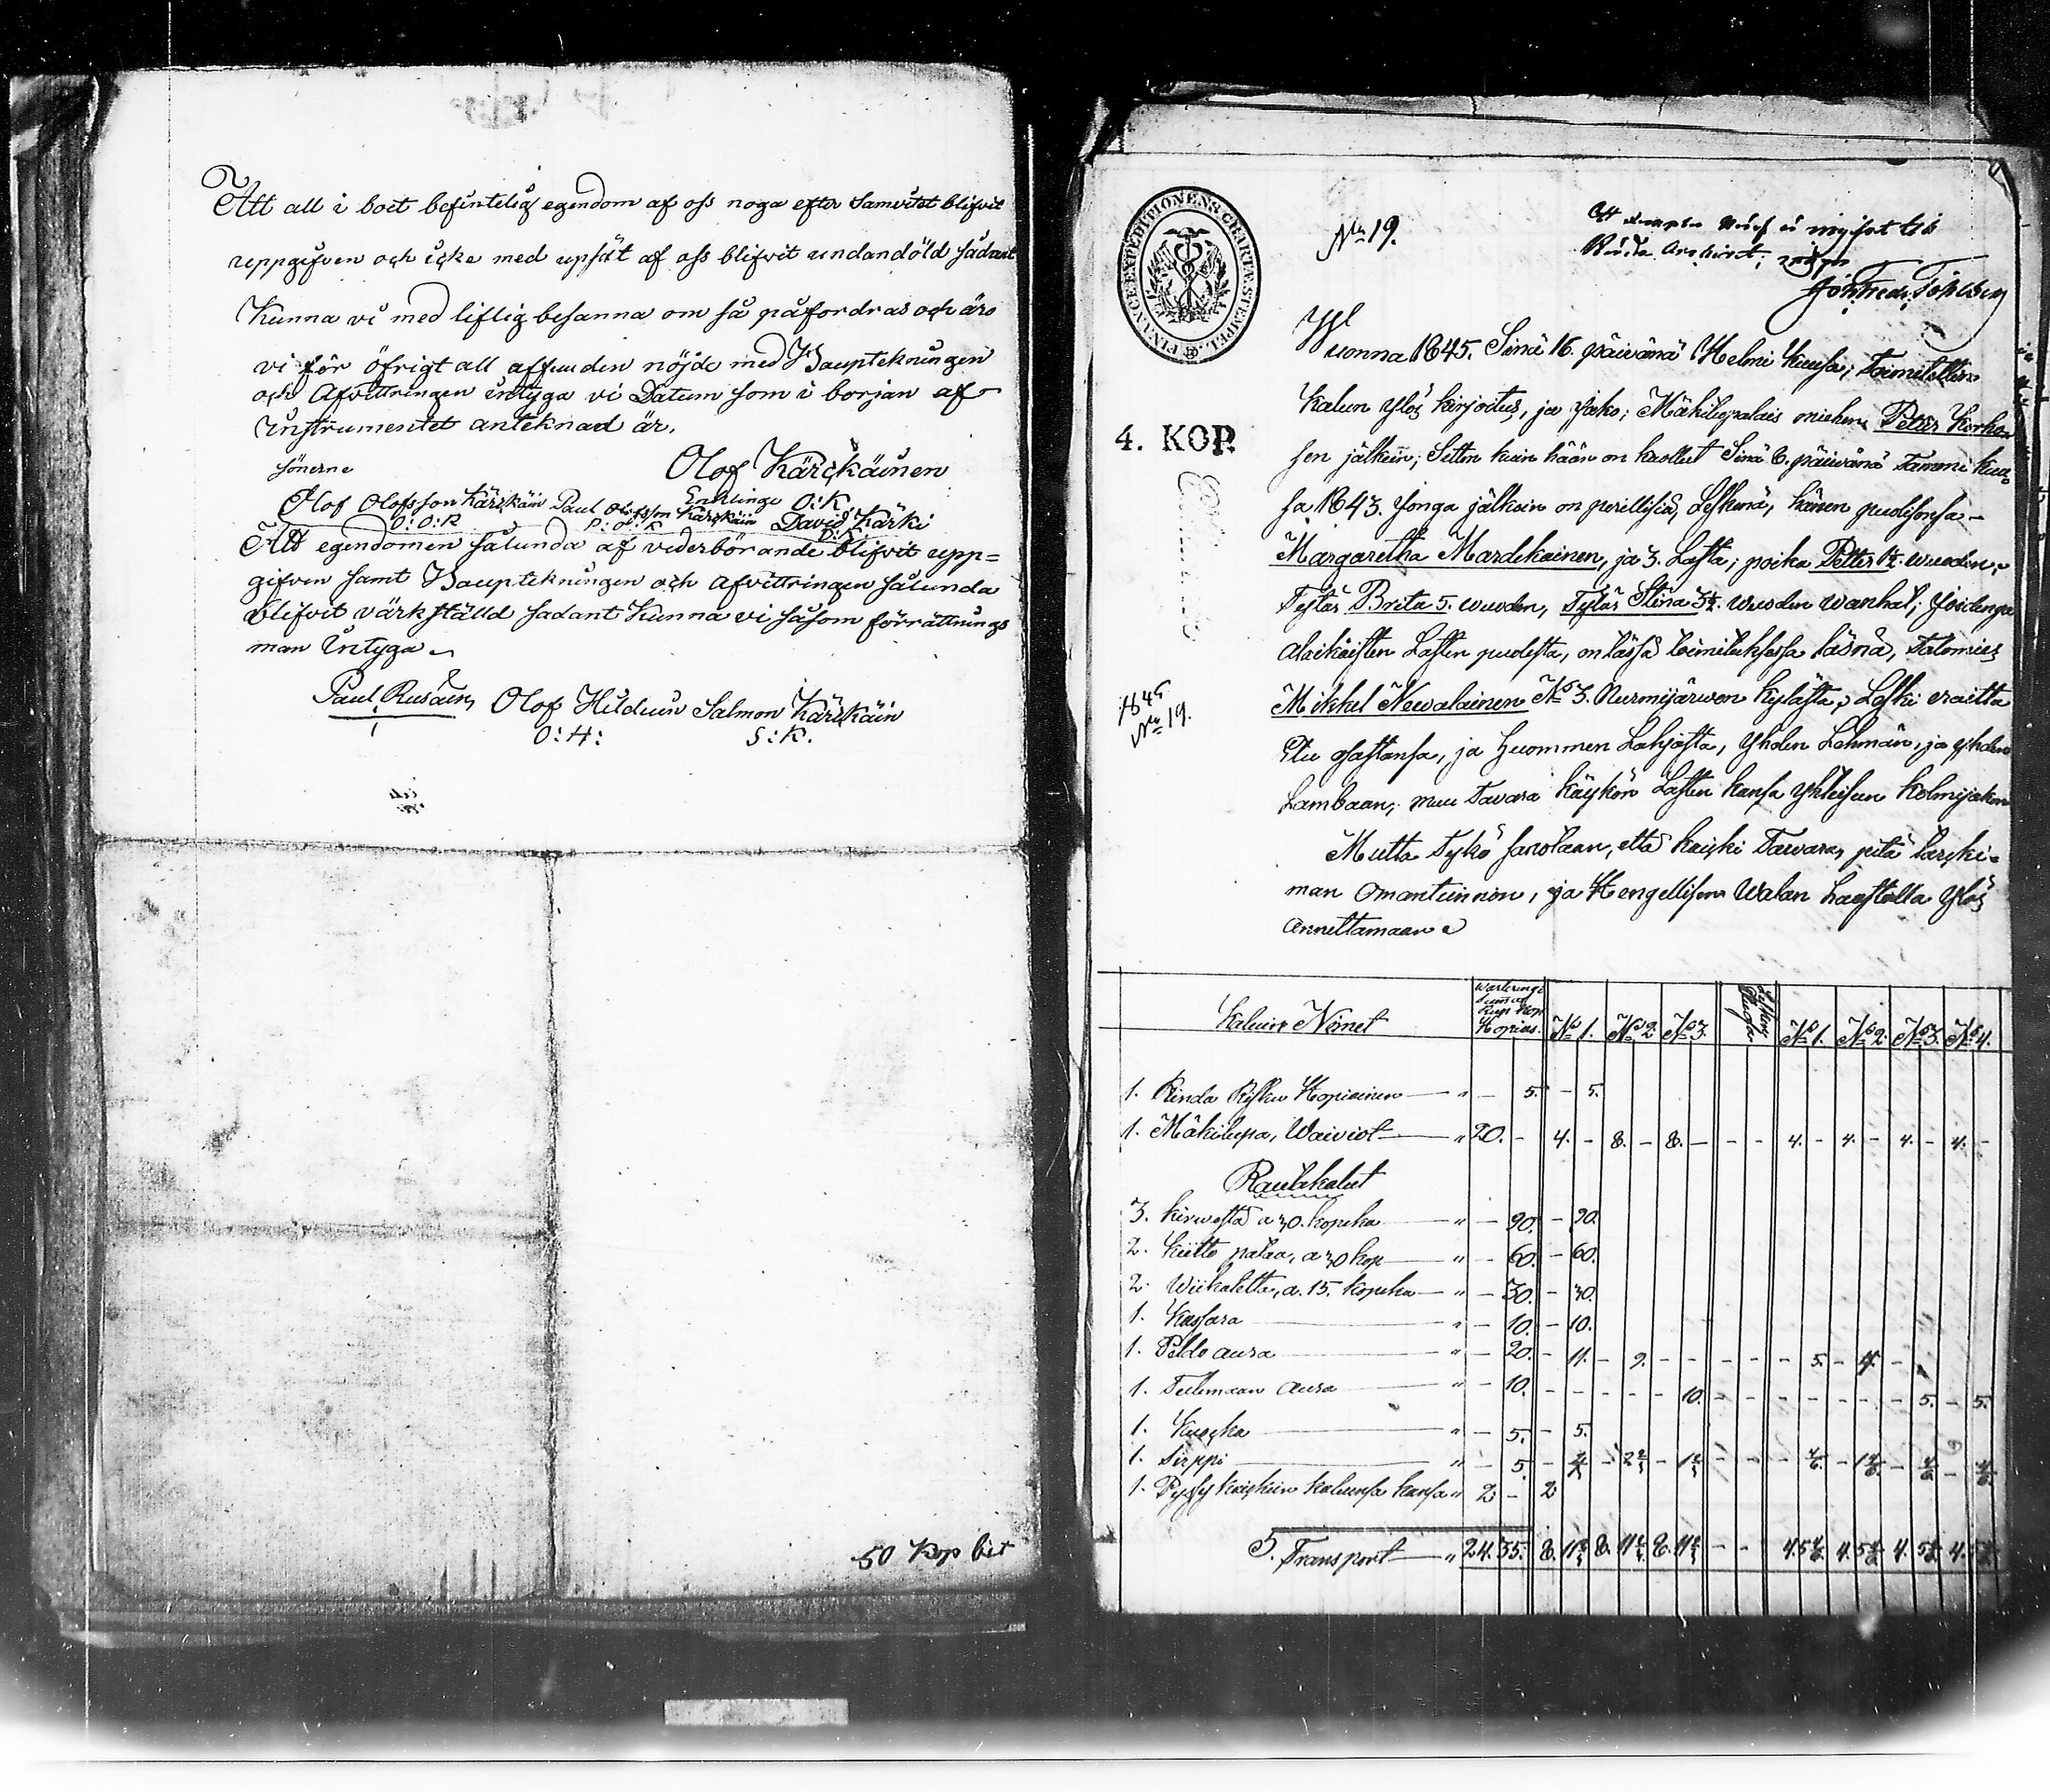 Att all i boet befintelig egendom af oss noga efter Samvetet blifvit
uppgifven och icke med upsåt af oss blifvit undandöld sådant
Kunna vi med liflig besanna om så påfordras och äro
vi för öfrigt all affwiden nöjde med Bouptekningen
och Afvittringen intyga vi Datum som i borjan af
Instrumentet anteknad är.
sönerne Olof Kärckäinen
Enklinge O:K.
Olof Olofsson Kärckäin Paul Olofsson Kärckäin David Kärki
O:O:K P:O:K D:K
Att egendomen sålunda af vederbörande blifvit upp=
gifven samt Bouptekningen och afvittringen sålunda
blifvit värkställd sadant Kunna vi såsom förrättnings
man Intyga
Paul Rusäin, Olof Hilduin Salmon Kärckäin
O:H: S:K.
50 Kop bet
FINANCE EXPEDITIONENS CHARTÆ STEMPEL
No 19.
4. KOP.
1845
No 19.
Wuonna 1845. Sinä 16. päivänä Helmi Kuusa; Toimitettin
Kalun ylös kirjoitus, ja Jako; Mäkitupalais miehen Petter Korho-
sen jälkein; Sitten kuin hään on kuollut Sinä 6. päivänä Tammi kuu-
sa 1843. Jonga jälkein on perillisiä, Leskenä, hänen puolisonsa -
Margaretha Mardikainen, ja 3. Lasta; poika Petter 12. wuoden,
Tytär Brita 5. wuoden, Tytär Stina 3½. wuoden wanhat; Joidenga
alaikäisten Lasten puolesta, on tässä toimituksessa läsnä, Talonmies
Mikkel Newalainen No 3. Nurmijärwen kylästä, Leski eroitta
Etu osastansa, ja Huommen Lahjasta, Yhden Lehmän, ja yhden
Lambaan; muu Tavara käykön Lasten kansa Yhteiseen kolmijakon
Mutta Tykö sanotaan, että kaicki Tawara, pitä tarcki-
man omantunnon, ja Hengellisen Walan haastolla Ylös
annettamaan
Kaluin Nimet No 1. No 2 No 3. No 1. No 2. No 3. No 4.
1. Rinda Rysku Hopiainen " - 5. - 5.
1. Mäkitupa, Waiviot " 20. - 4. - 8. - 8. - - - 4. - 4. - 4. - 4. -
Rautakalut
3. kirwestä a 30. kopeka " - 90. - 90.
2. Kiitto pataa, a 30 kop " - 60. - 60.
2. Wiikatetta, a. 15. kopeka " - 30. - 30.
1. Kassara " - 10. - 10.
1. Peldo aura " - 20. - 11. - 9. - - - - - 5. - 4. -
1. Tulimaan aura " - 10. - - - - - 10. - - - - - - - 5. - 5.
1. Kuocka " - 5. - 5.
1. Sirppi " - 5
1. Pyssy kaickein kaluinsa kansa " 2. - 2
S. Transport " 24. 35.